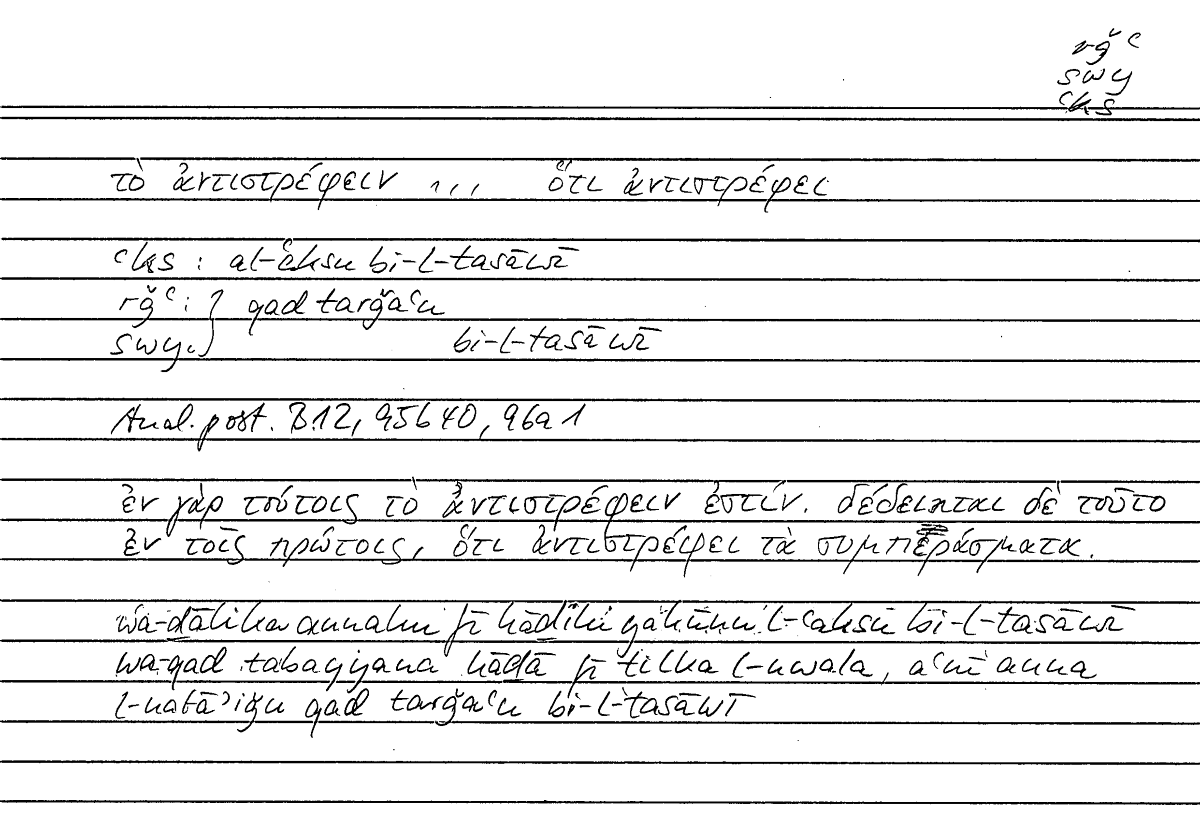 rǧʿ
swy
ʿks
τὸ ἀντιστρέφειν ... ὅτι ἀντιστρέφει
ʿks : al-ʿaksu bi-l-tasāwī
rǧʿ : } qad tarǧaʿu
swy. } bi-l-tasāwī
Anal. post. B12, 95b40, 96a1
ἐν γὰρ τούτοις τὸ ἀντιστρέφειν ἐστίν. δέδεικται δὲ τοῦτο
ἐν τοῖς πρώτοις, ὅτι ἀντιστρέφει τὰ συμπεράσματα.
wa-ḏālika annahu fī hāḏihi yakūnu l-ʿaksu bi-l-tasāwī
wa-qad tabayyana hāḏā fī tilka l-uwala, aʿnī anna
l-natāʾiǧu qad tarǧaʿu bi-l-tasāwī